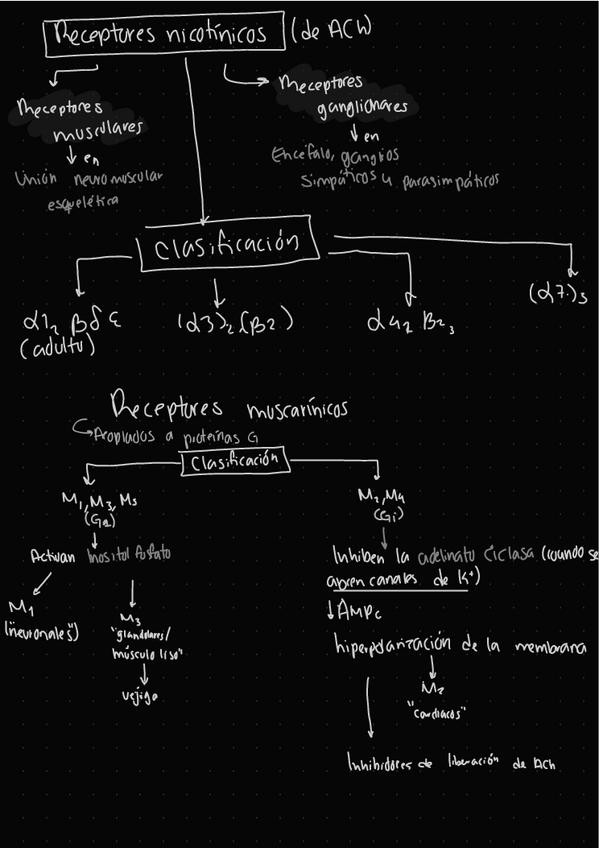 Receptores nicotínicos (de ACh)
Receptores
musculares
en
Unión neuromuscular
esquelética
Receptores
ganglionares
en
Encéfalo, ganglios
Simpáticos y parasimpáticos
Clasificación
α1₂ β δ ε
(adulto)
(α3)₂ (β2)
α4₂ β2₃
(α7)₅
Receptores muscarínicos
Acoplados a proteínas G
Clasificación
M₁, M₃, M₅
Activan Inositol fosfato
M₁
("neuronales")
M₃
"glandulares/
músculo liso"
vejiga
M₂, M₄
(Gi)
Inhiben la adelinato ciclasa (cuando se
abren canales de K⁺)
↓AMPc
hiperpolarización de la membrana
M₂
"cardiacos"
Inhibidores de liberación de ACh